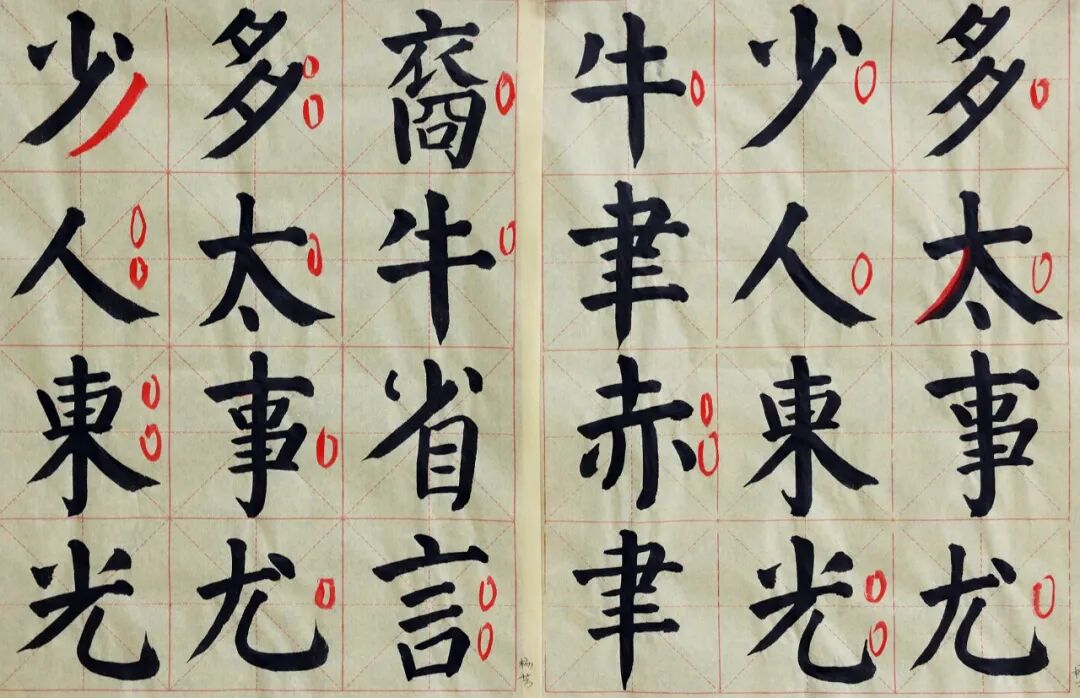 多太事尤
少人東光
牛聿赤聿
裔牛省言
多太事尤
少人東光